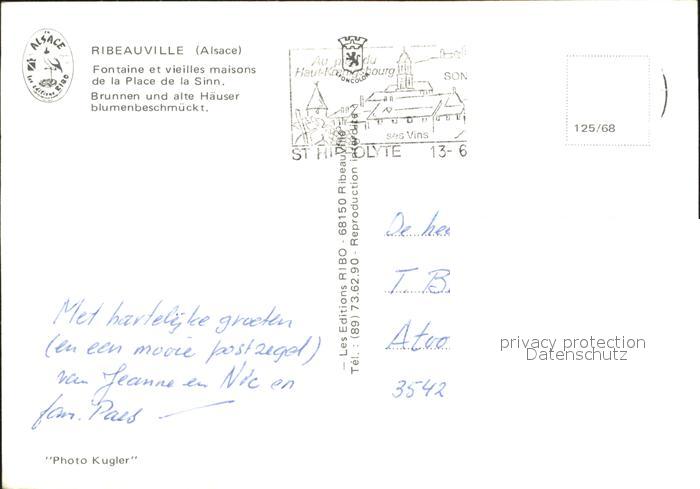 ALSACE
les éditions RIBO
RIBEAUVILLE (Alsace)
Fontaine et vieilles maisons
de la Place de la Sinn.
Brunnen und alte Häuser
blumenbeschmückt.
Au pied du
Haut-Koenigsbourg
SON
ses Vins
ST HIPPOLYTE 13-6
125/68
— Les Editions RIBO - 68150 Ribeauvillé
Tél. : (89) 73.62.90 - Reproduction interdite
De hee
T. B.
Atoo
3542
privacy protection
Datenschutz
Met hartelijke groeten
(en een mooie postzegel)
van Jeanne en Nic en
fam. Paes
"Photo Kugler"